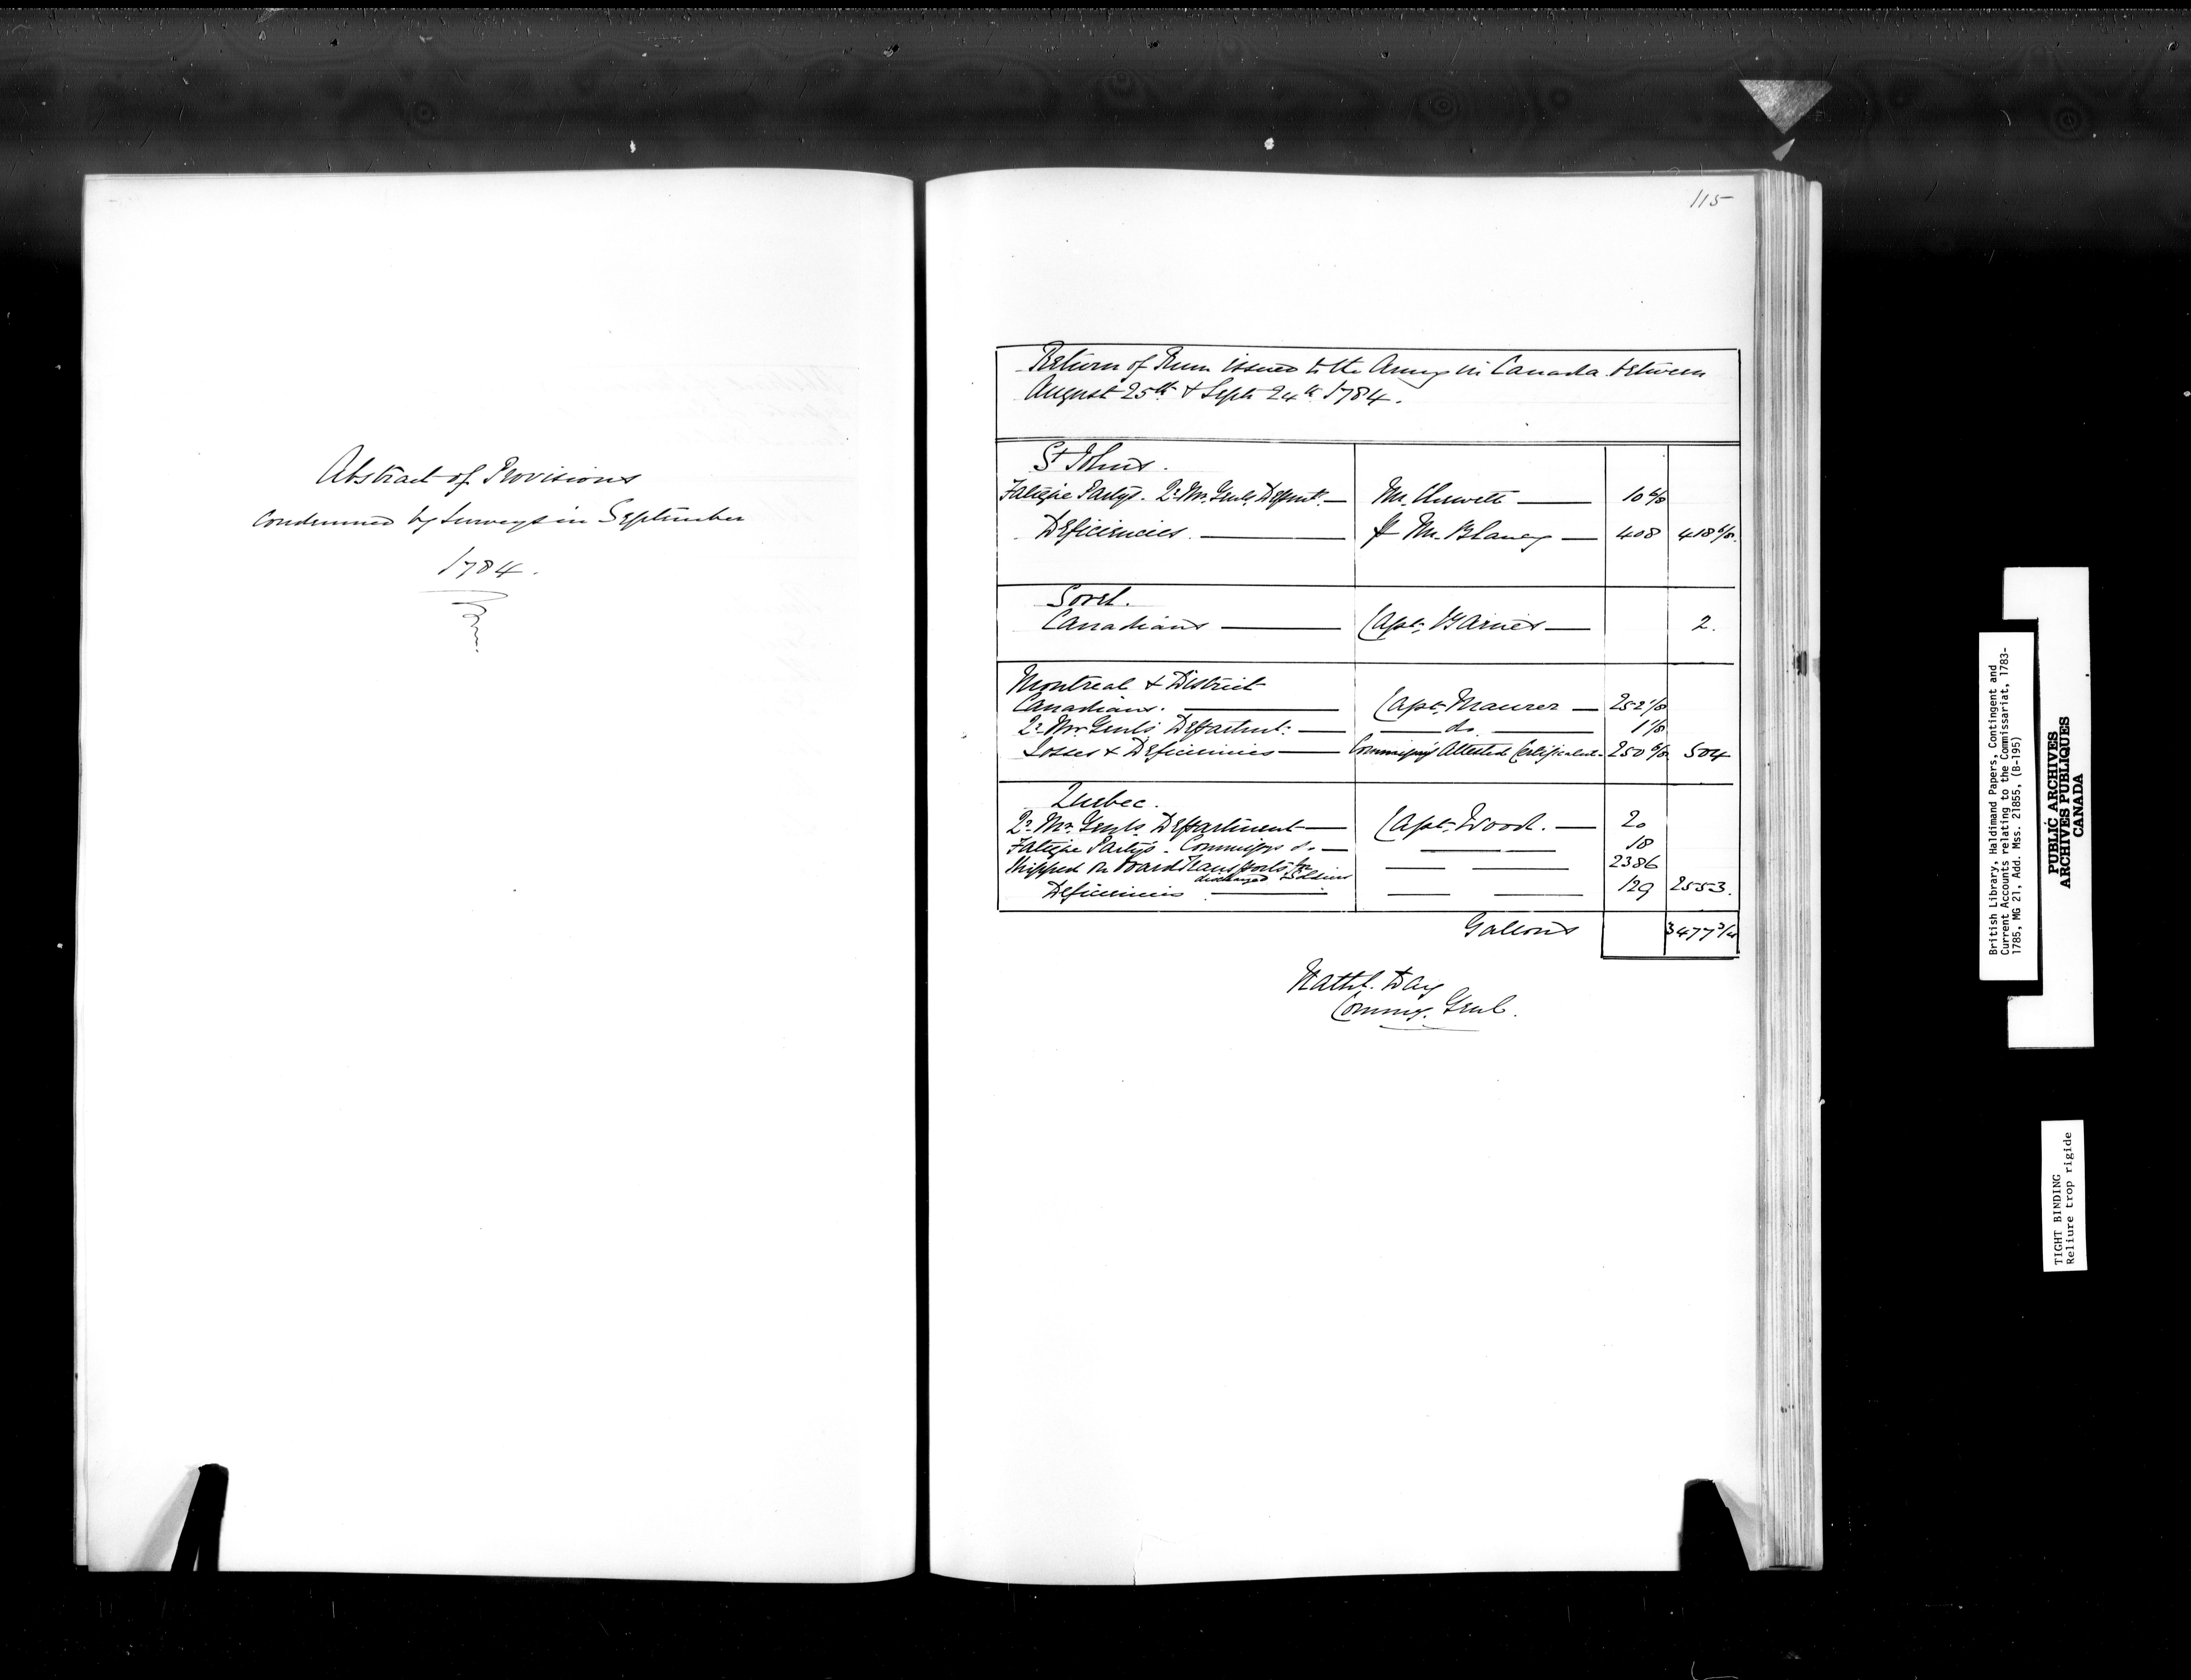 Abstract of Provisions
Condemned by Surveys in September
1784.
115
Return of Rum issued to the Army in Canada between
August 25th & Septr 24th 1784.
St Johns.
Fatigue Partys. Qr. Mr. Genls. Depmt. — Mr. — 10 6/8
Deficiencies. — Mr. Blaney — 408 418 6/8.
Sorel.
Canadians — Capt. Barnes — 2.
Montreal & District
Canadians. — Capt. Maurer — 252 1/8
Qr. Mr. Genls Departmt: — do. — 1 1/8
Losses & Deficiencies — Commissys Attested Certificates. 250 6/8 504
Quebec.
Qr. Mr. Genls. Department — Capt. Wood. — 20
Fatigue Partys. Commissys do. — — — 18
Shipped on board Transports for discharged Soldiers — — 2386
Deficiencies — — — 129 2553.
Gallons 3477 3/4
Nathl. Day
Commy. Genl.
British Library, Haldimand Papers, Contingent and
Current Accounts relating to the Commissariat, 1783-
1785, MG 21, Add. Mss. 21855, (B-195)
PUBLIC ARCHIVES
ARCHIVES PUBLIQUES
CANADA
TIGHT BINDING
Reliure trop rigide